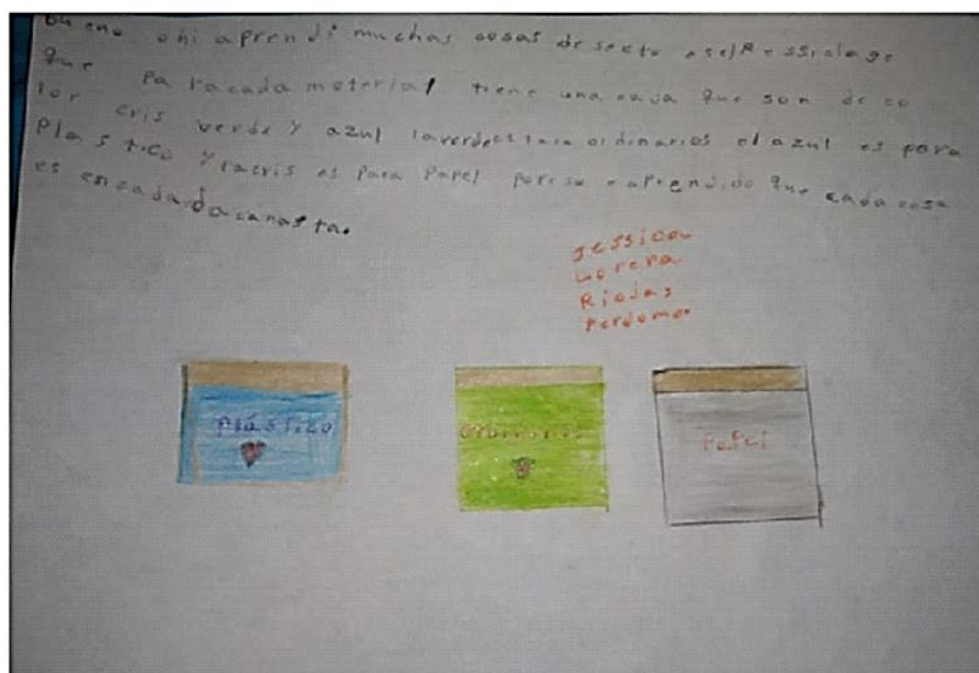 bueno ohi aprendi muchas cosas de sexto
que pa racada material tiene una caja que son de co
lor cris verde y azul laverdees ordinarios el azul es para
Plas tico y racris es para papel poreso e aprendido que cada cosa
es encadada canas ta.
Jessica
Lorena
Riodas
Perdomo.
plástico
papel